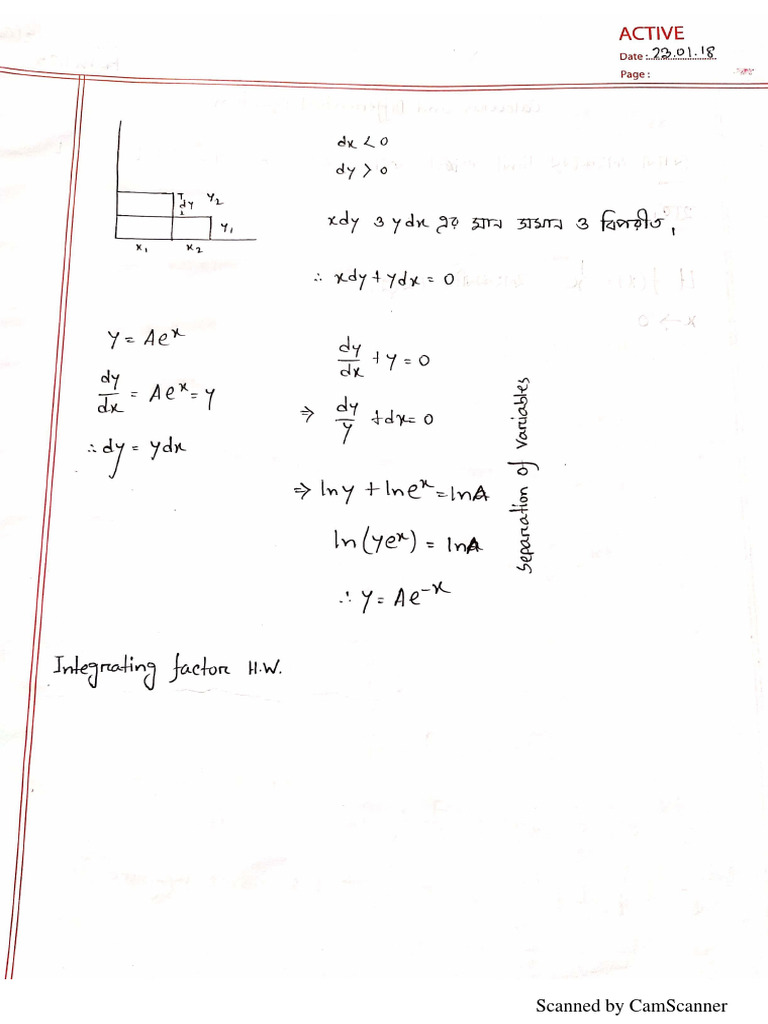 ACTIVE
Date: 23.01.18
Page :
dx < 0
dy > 0
dy
y₂
y₁
x₁
x₂
xdy ও ydx এর মান সমান ও বিপরীত,
∴ xdy + ydx = 0
y = Aeˣ
dy/dx = Aeˣ = y
∴ dy = ydx
dy/dx + y = 0
⇒ dy/y + dx = 0
⇒ lny + lneˣ = lnA
ln(yeˣ) = lnA
∴ y = Ae⁻ˣ
Separation of variables
Integrating factor H.W.
Scanned by CamScanner